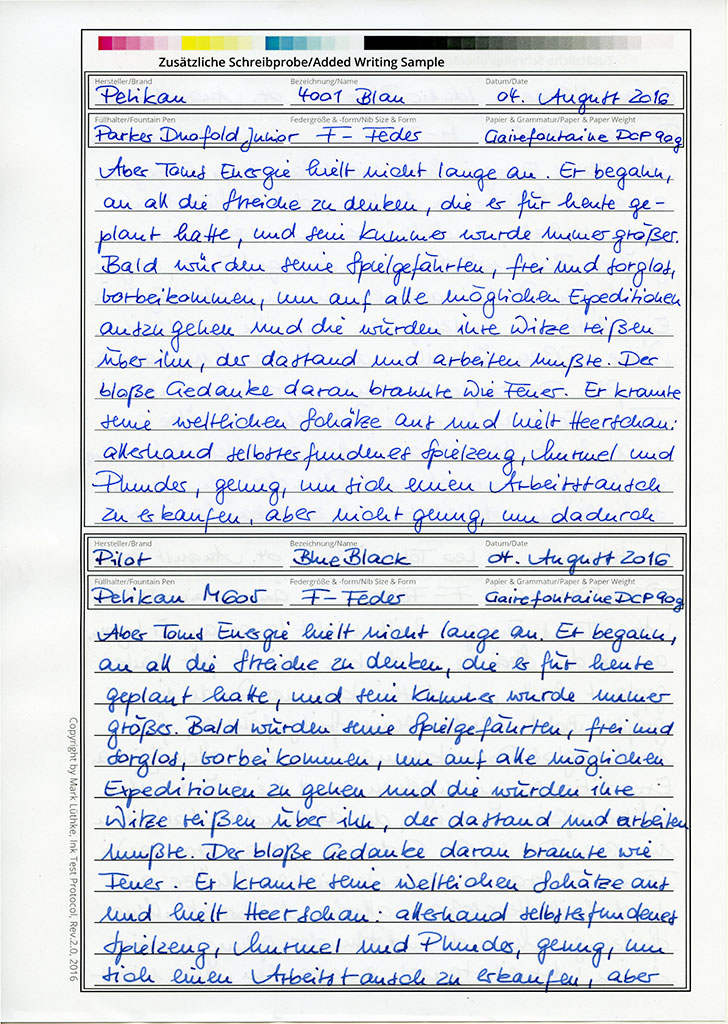 Zusätzliche Schreibprobe/Added Writing Sample
Hersteller/Brand Bezeichnung/Name Datum/Date
Pelikan 4001 Blau 04. August 2016
Füllhalter/Fountain Pen Federgröße & -form/Nib Size & Form Papier & Grammatur/Paper & Paper Weight
Parker Duofold Junior F-Feder Clairefontaine DCP 90g
Aber Toms Energie hielt nicht lange an. Er begann,
an all die Streiche zu denken, die er für heute ge-
plant hatte, und sein Kummer wurde immer größer.
Bald würden seine Spielgefährten, frei und sorglos,
vorbeikommen, um auf alle möglichen Expeditionen
auszugehen und die würden ihre Witze reißen
über ihn, der dastand und arbeiten mußte. Der
bloße Gedanke daran brannte wie Feuer. Er kramte
seine weltlichen Schätze aus und hielt Heerschau:
allerhand selbsterfundenes Spielzeug, Murmel und
Plunder, genug, um sich einen Arbeitstausch
zu erkaufen, aber nicht genug, um dadurch
Hersteller/Brand Bezeichnung/Name Datum/Date
Pilot Blue Black 04. August 2016
Füllhalter/Fountain Pen Federgröße & -form/Nib Size & Form Papier & Grammatur/Paper & Paper Weight
Pelikan M605 F-Feder Clairefontaine DCP 90g
Aber Toms Energie hielt nicht lange an. Er begann,
an all die Streiche zu denken, die er für heute
geplant hatte, und sein Kummer wurde immer
größer. Bald würden seine Spielgefährten, frei und
sorglos, vorbeikommen, um auf alle möglichen
Expeditionen zu gehen und die würden ihre
Witze reißen über ihn, der dastand und arbeiten
mußte. Der bloße Gedanke daran brannte wie
Feuer. Er kramte seine weltlichen Schätze aus
und hielt Heerschau: allerhand selbsterfundenes
Spielzeug, Murmel und Plunder, genug, um
sich einen Arbeitstausch zu erkaufen, aber
Copyright by Mark Lüthke, Ink Test Protocol, Rev.2.0, 2016